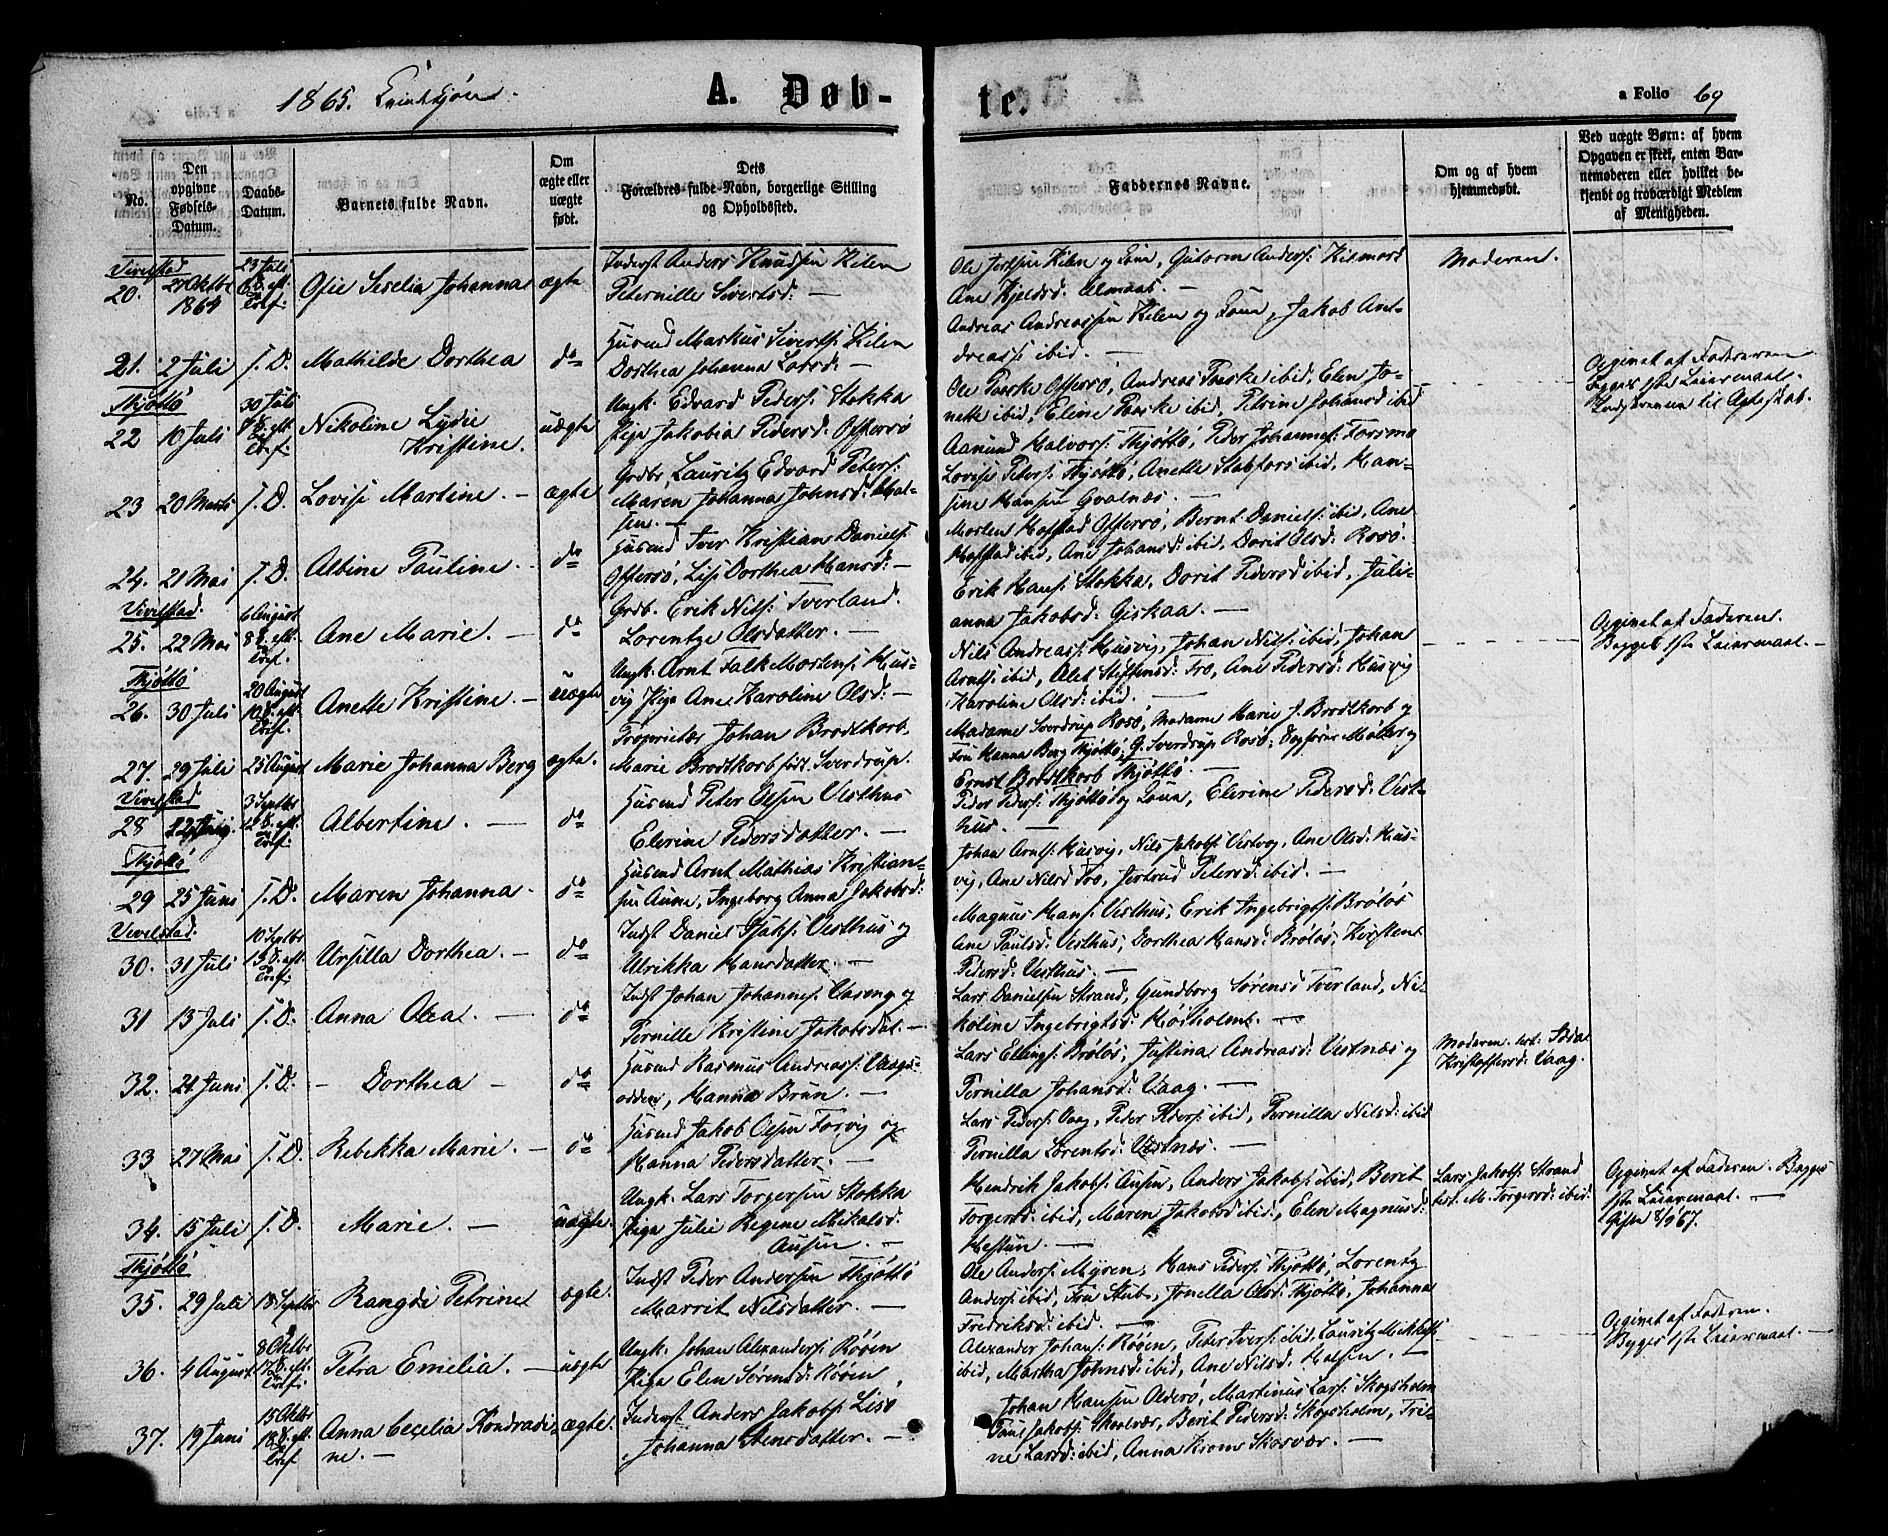 1865. Qvindkjøn.
A. Døb-
te.
a Folio 69
No.
Den opgivne Fødsels-Datum.
Daabs-Datum.
Barnets fulde Navn.
Om ægte eller uægte født.
Dets Forældres fulde Navn, borgerlige Stilling og Opholdssted.
Faddernes Navne.
Om og af hvem hjemmedøbt.
Ved uægte Børn: af hvem Opgaven er skeet, enten Barnemoderen eller hvilket bekjendt og troværdigt Medlem af Menigheden.
Vivelstad
20. 27 Oktbr 1864 23 Juli 6 S. eft. Tref. Ofie Sirelia Johanna ægte
Inderst Anders Knudsen Kilen
Peternille Sivertsd: —
Ole Kilen og Kone, Guttorm Anders: Kilmord
Ane Kjeldsd: Almaas. —
Moderen.
21. 2 Juli s. D. Mathilde Dorthea do
Husmd Markus Siverts: Kilen
Dorthea Johanna Larsd: —
Andreas Andreassen Kilen og Kone, Jakob An-
dreass: ibid. —
Thjøttø
22 10 Juli 30 Juli 7 S. eft. Tref. Nikoline Lydie Kristine. uægte
Ungk: Edvard Peders: Stokka
Pige Jakobia Pedersd: Offersø
Ole Paaske Offersø, Andreas Paaske ibid, Elen Jo-
nette ibid, Eline Paaske ibid, Petrine Johansd ibid
Opgivet af Faderen
Begges 1ste Leiermaal.
til Ægteskab.
23 20 Marts s. D. Lovise Martine. — ægte
Grdbr, Lauritz Edvard Peters:
Maren Johanna Johnsd: Hal-
sen. —
Aanund Halvors: Thjøttø, Peder Johannes: Forsmo
Lovise Peters: Thjøttø, Anette Stabfors ibid, Han-
sine Hansen Qvalnæs. —
24. 21 Mai s. D. Albine Pauline. — do
Husmd Iver Kristian Daniels:
Offersø, Lise Dorthea Hansd: —
Morten Hofstad Offersø, Bernt Daniels: ibid, Ane
Hofstad ibid, Ane Johansd: ibid, Dorit Olsd: Rosø.
Vivelstad.
25. 22 Mai 6 August 8 S. eft. Tref. Ane Marie. — do
Grdb. Erik Nils: Tverland.
Lorentze Olsdatter. —
Erik Hans: Stokka, Dorit Pedersd ibid, Juli-
anna Jakobsd: Giskaa. —
Thjøttø
26. 30 Juli 20 August 10 S. eft. Tref. Anette Kristine. — uægte
Ungk: Arnt Falk Mortens: Hus-
vig Pige Ane Karoline Olsd: —
Nils Andreass: Husvig, Johan Nils: ibid, Johan
Arnts: ibid, Alet Steffensd: Tro, Ane Pedersd: Husvig
Karoline Olsd: ibid. —
Opgivet af Faderen.
Begges 1ste Leiermaal. —
27. 29 Juli 25 August Marie Johanna Berg ægte.
Proprietær Johan Brodtkorb.
Marie Brodtkorb født Sverdrup.
Madame Sverdrup Rosø, Madame Marie J. Brodtkorb og
Fru Hanna Berg Thjøttø; G. Sverdrup Rosø; Møller og
Ernst Brodtkorb Thjøttø. —
Vivelstad
28 3 Septbr 12 S. eft. Tref. Albertine. — do
Husmd Peter Olsen Vesthus
Elerine Pedersdatter. —
Peder Peders: Thjøttø og Kone, Elerine Pedersd: Vest-
hus. —
Thjøttø
29 25 Juni s. D. Maren Johanna — do
Husmd Arnt Mathias Kristian-
sen Aune, Ingeborg Anna Jakobsd:
Johan Arnts: Husvig, Nils Jakobs: Vestvog, Ane Olsd: Hus-
vig, Ane Nilsd Tro, Jertrud Petersd: ibid. —
Vevelstad.
30. 31 Juli 10 Septbr 13 S. eft. Tref. Ursilla Dorthea. — do
Indst Daniel Isaks: Vesthus og
Ulrikka Hansdatter. —
Magnus Hans: Vesthus, Erik Ingebrigts: Brøløs
Ane Paulsd: Vesthus; Dorthea Hansd: Brøløs, Kirsten
Pedersd: Vesthus. —
31 13 Juli s. D. Anna Olea. — do
Indst Johan Johannes: Vareng og
Pernille Kristine Jakobsdat. —
Lars Danielsen Strand, Gundborg Sørensd Tverland, Ni-
koline Ingebrigtsd: Høsholmt. —
32. 21 Juni s. D. — Dorthea — do
Husmd Rasmus Andreass: Vaags-
odden, Hanna Brun. —
Lars Ellings: Brøløs, Justina Andreasd: Vestnæs og
Pernilla Johansd: Vaag. —
Moderen.
Kristoffersd: Vaag.
33 27 Mai s. D. Rebekka Marie. — do
Husmd Jakob Olsen Forvig og
Hanna Pedersdatter. —
Lars Peders: Vaag, Peder Peders: ibid, Pernilla Nilsd: ibid
Pernilla Lorentsd: Vestnæs. —
34. 15 Juli s. D. Marie. — uægte.
Ungk: Lars Torgersen Stokka
Pige Julie Regine Mikalsd:
Ausen. —
Hendrik Jakobs: Ausen, Anders Jakobs: ibid, Berit
Torgersd: ibid, Maren Jakobsd ibid, Elen Magnusd:
Hestun. —
Lars Jakobs: Strand
M. Torgersd: ibid.
Opgivet af Faderen. Begges
1ste Leiermaal. —
Gifte 8/9 67.
Thjøttø
35. 29 Juli 18 Septbr Rangdi Petrine ægte.
Indst Peder Andersen Thjøttø
Marrit Nilsdatter. —
Ole Anders: Myren, Hans Peders: Thjøttø, Lorentz
Anders: ibid, Fru Stub, Jonella Olsd: Thjøttø, Johanna
Fredriksd: ibid. —
36. 4 August 8 Oktbr 17 S. eft. Tref. Petra Emelia. — uægte
Ungk: Johan Alexanders: Røøen
Pige Elen Sørensd: Røøen
Alexander Johans: Røøen, Peter Ivers: ibid, Lauritz Mikkels:
ibid, Martha Johnsd: ibid, Ane Nilsd: Halsen. —
Opgivet af Faderen.
Begges 1ste Leiermaal. —
37. 19 Juni 15 Oktbr 18 S. eft. Tref Anna Cecelia Kondradi-
ne. — ægte.
Inderst Anders Jakobs: Lisø
Johanna Stensdatter. —
Johan Hansen Olderø, Martinus Lars: Skogsholm
Paul Jakobs: Skalvær, Berit Pedersd: Skogsholm, Tri-
ne Larsd: ibid, Anna Krons Skosvær. —